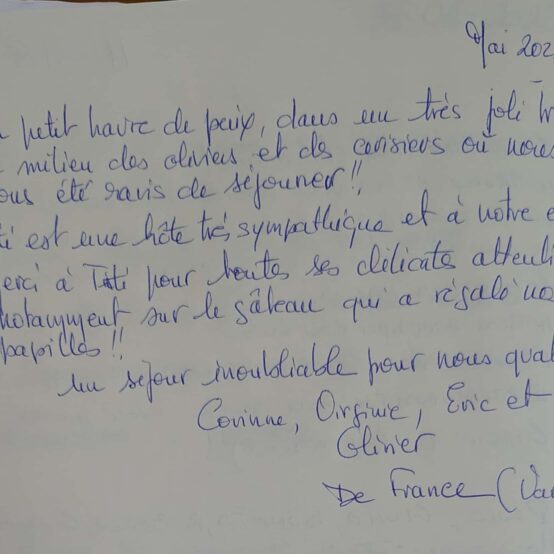 Mai 202
petit havre de paix, dans un très joli
milieu des oliviers et des cerisiers où nous
ous été ravis de séjourner!!
ti est une hôte très sympathique et à notre é
erci à Titi pour toutes ses délicates attenti
notamment sur le gâteau qui a régalé nos
papilles!!
un séjour inoubliable pour nous quat
Corinne, Virginie, Eric et
Olivier
De France (Va